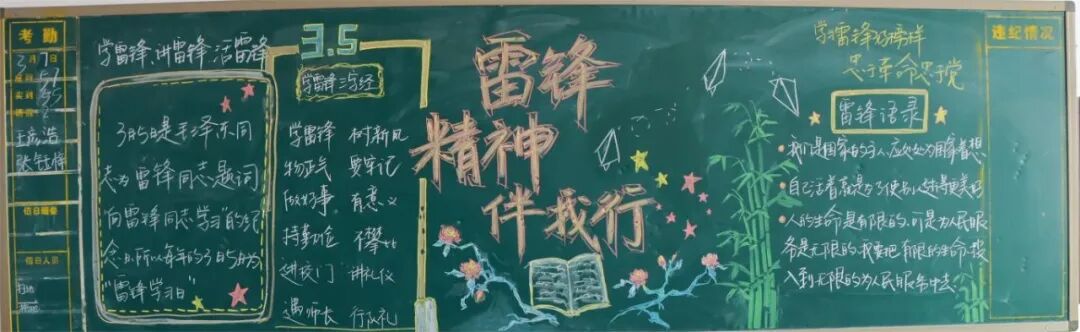 考勤
3月7日
应到 57
实到 55
王彦浩
值日班长
值日人员
扫地
学雷锋 讲雷锋 活雷锋
3月5日是毛泽东同
志为雷锋同志题词
"向雷锋同志学习"的纪
念日,所以每年的3月5日为
"雷锋学习日"
3.5
学雷锋三字经
学雷锋 树新风
扬正气 要牢记
做好事 有意义
持勤俭 不攀比
进校门 讲礼仪
遇师长 行队礼
雷锋
精神
伴我行
学习雷锋好榜样
忠于革命忠于党
雷锋语录
我们是国家的主人,应处处为国家着想
自己活着就是为了使别人过得更美好
人的生命是有限的,可是为人民服
务是无限的,我要把有限的生命投
入到无限的为人民服务中去
违纪情况